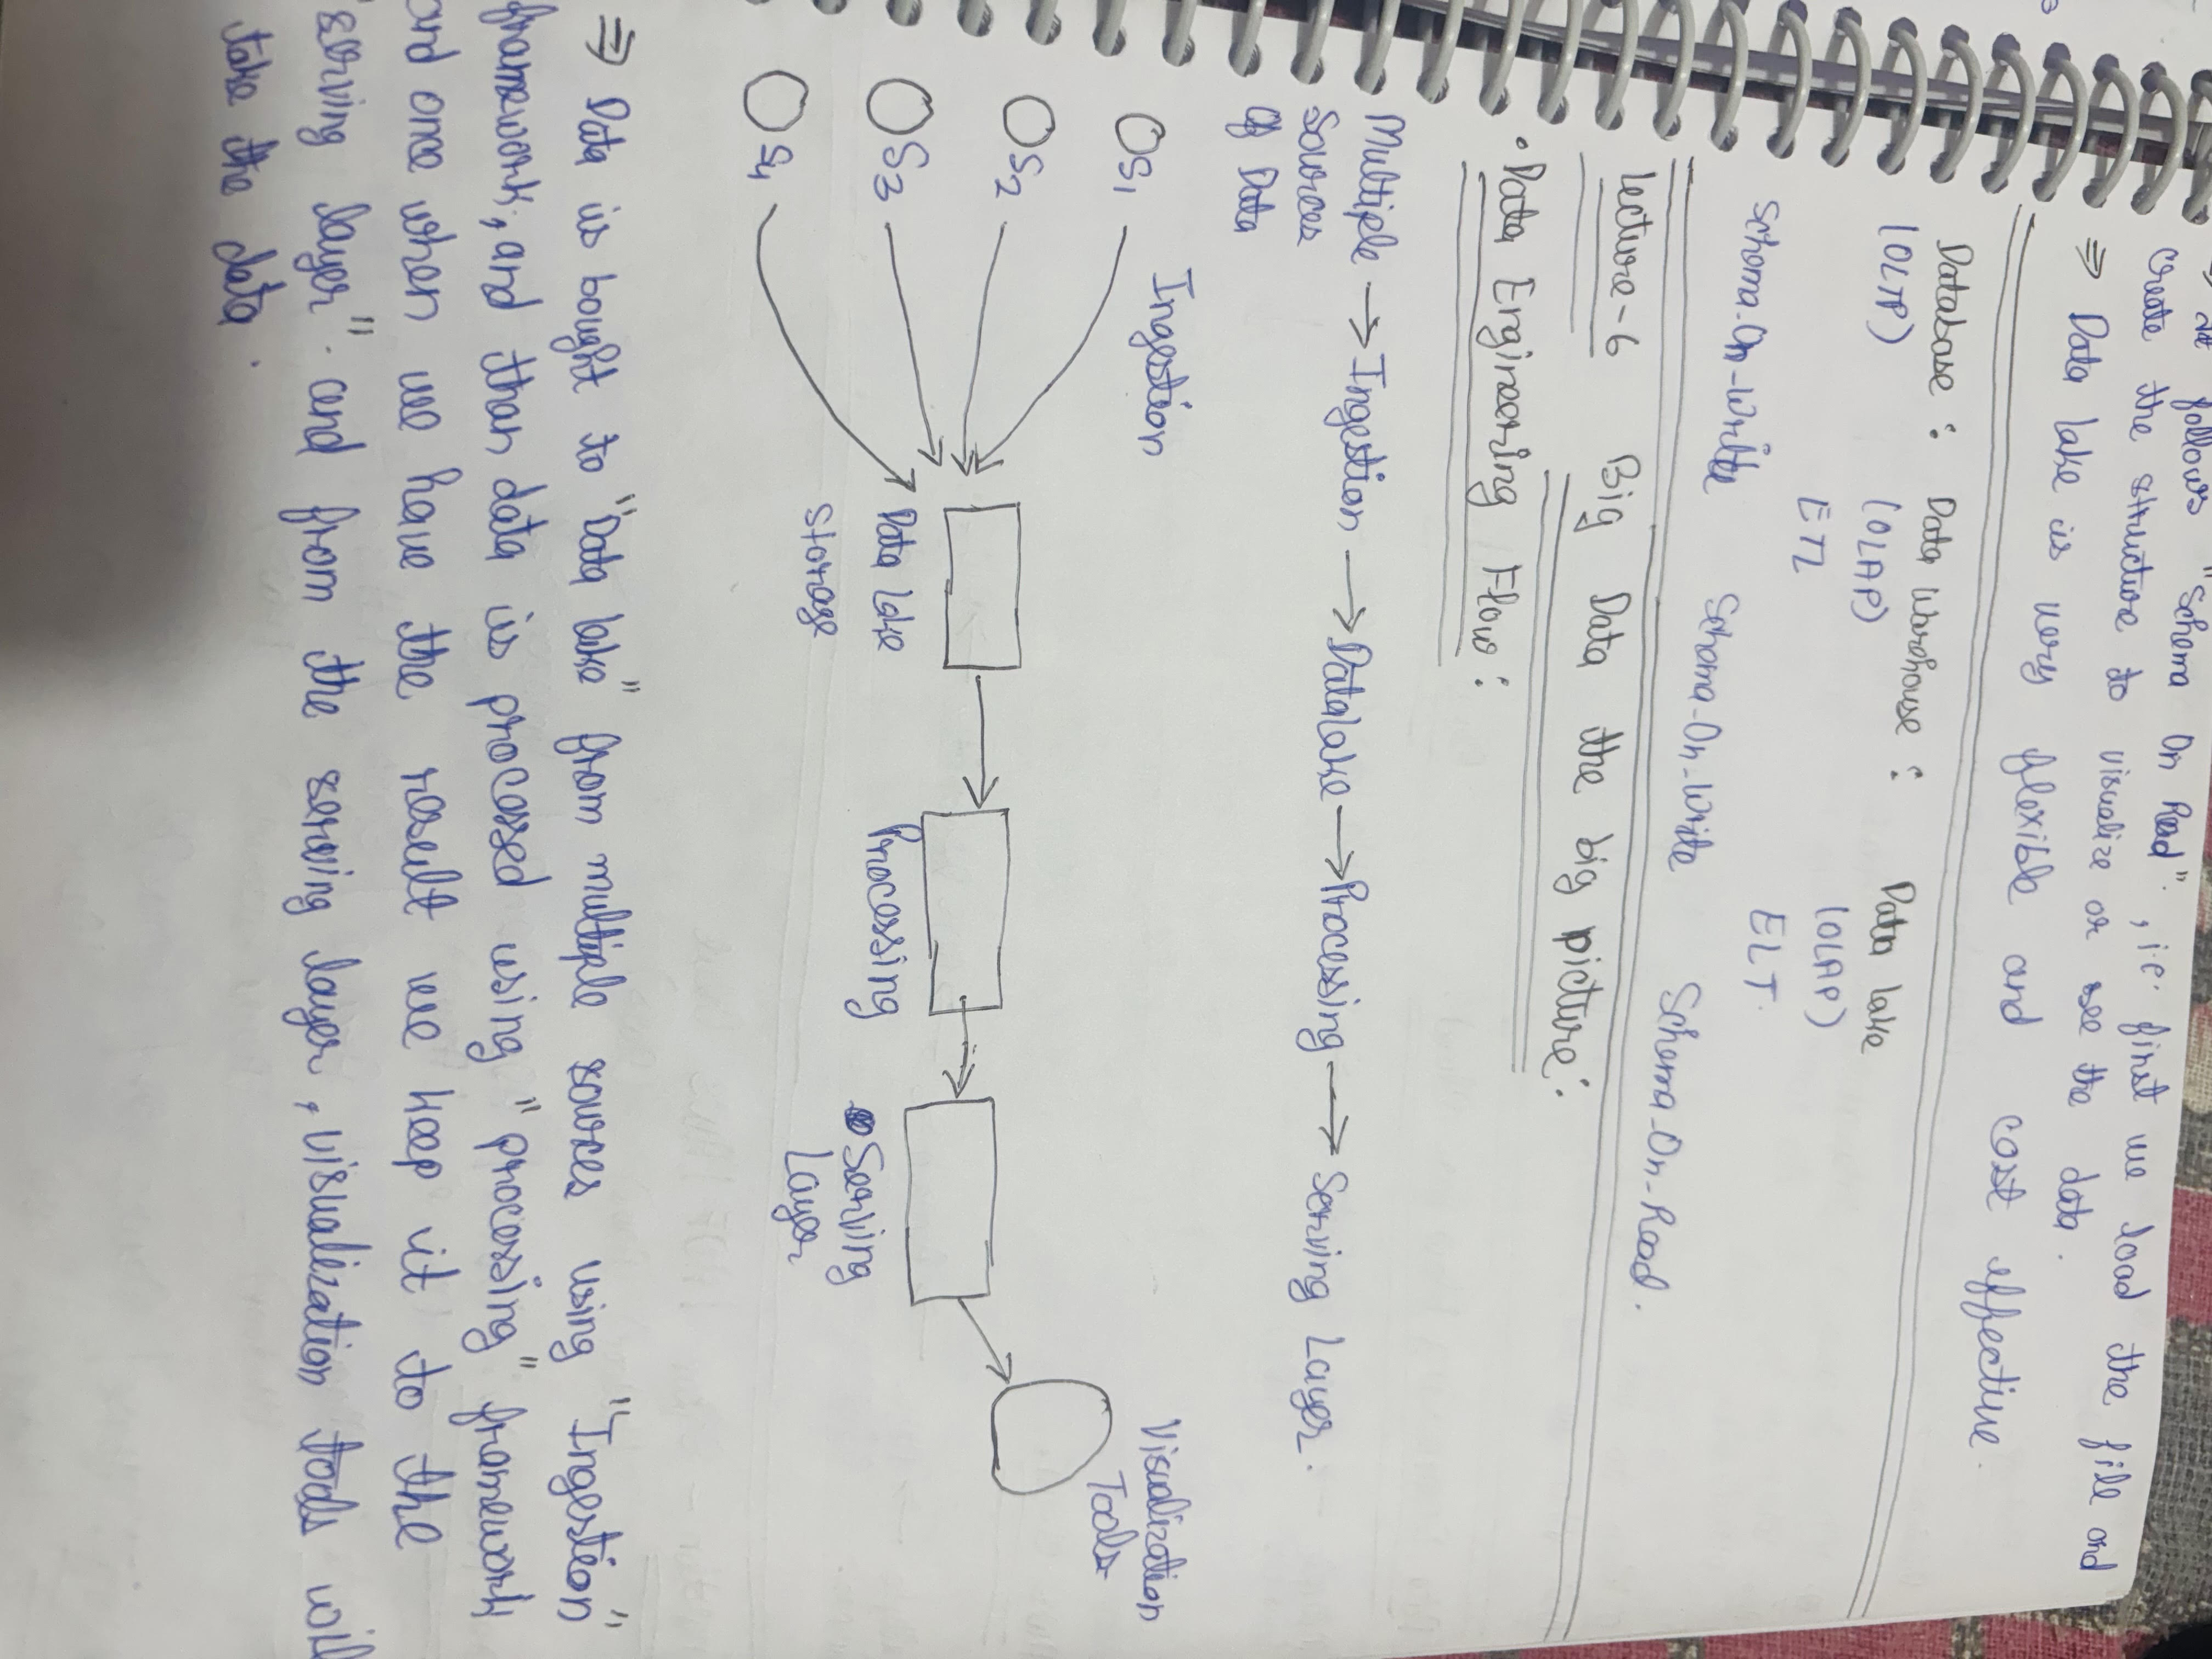 follows "Schema On Read", i.e. first we load the file and
create the structure to visualize or see the data.
⇒ Data lake is very flexible and cost effective
Database : Data Warehouse : Data lake
(OLTP) (OLAP) (OLAP)
ETL ELT.
Schema-On-Write Schema-On-Write Schema-On-Read.
Lecture-6 Big Data the big picture:
• Data Engineering Flow :
Multiple → Ingestion → Datalake → Processing → Serving Layer.
Sources
Of Data
Ingestion
Visualization
Tools
S1
S2
S3
S4
Data lake
Storage
Processing
Serving
Layer
⇒ Data is bought to "Data lake" from multiple sources using "Ingestion"
framework, and than data is processed using "processing" framework
and one when we have the result we keep it to the
"serving layer". and from the serving layer, visualization tools will
take the data.